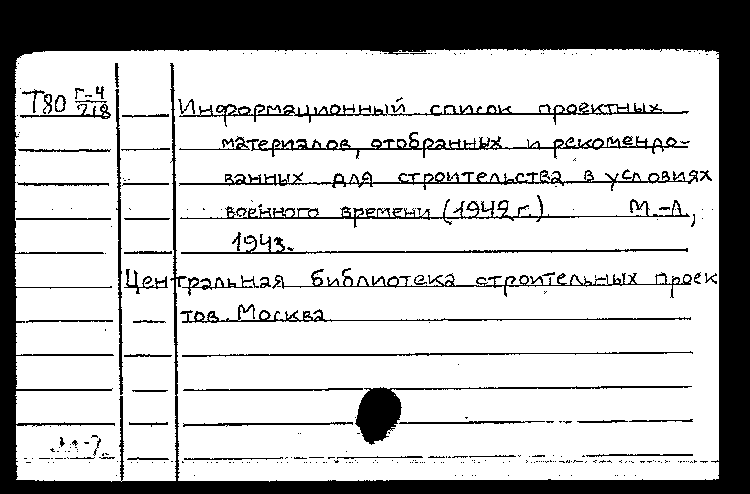 Т80 Г-4/218
Информационный список проектных
материалов, отобранных и рекомендо-
ванных для строительства в условиях
военного времени (1942 г.) М.-Л,
1943.
Центральная библиотека строительных проек
тов. Москва